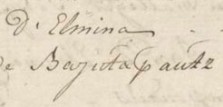 D'Elmina
de Bajuta pautz